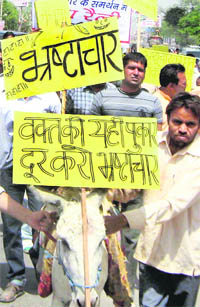 के समर्थन में
रैली
भ्रष्टाचार
वक्त की यही पुकार
दूर करो भ्रष्टाचार